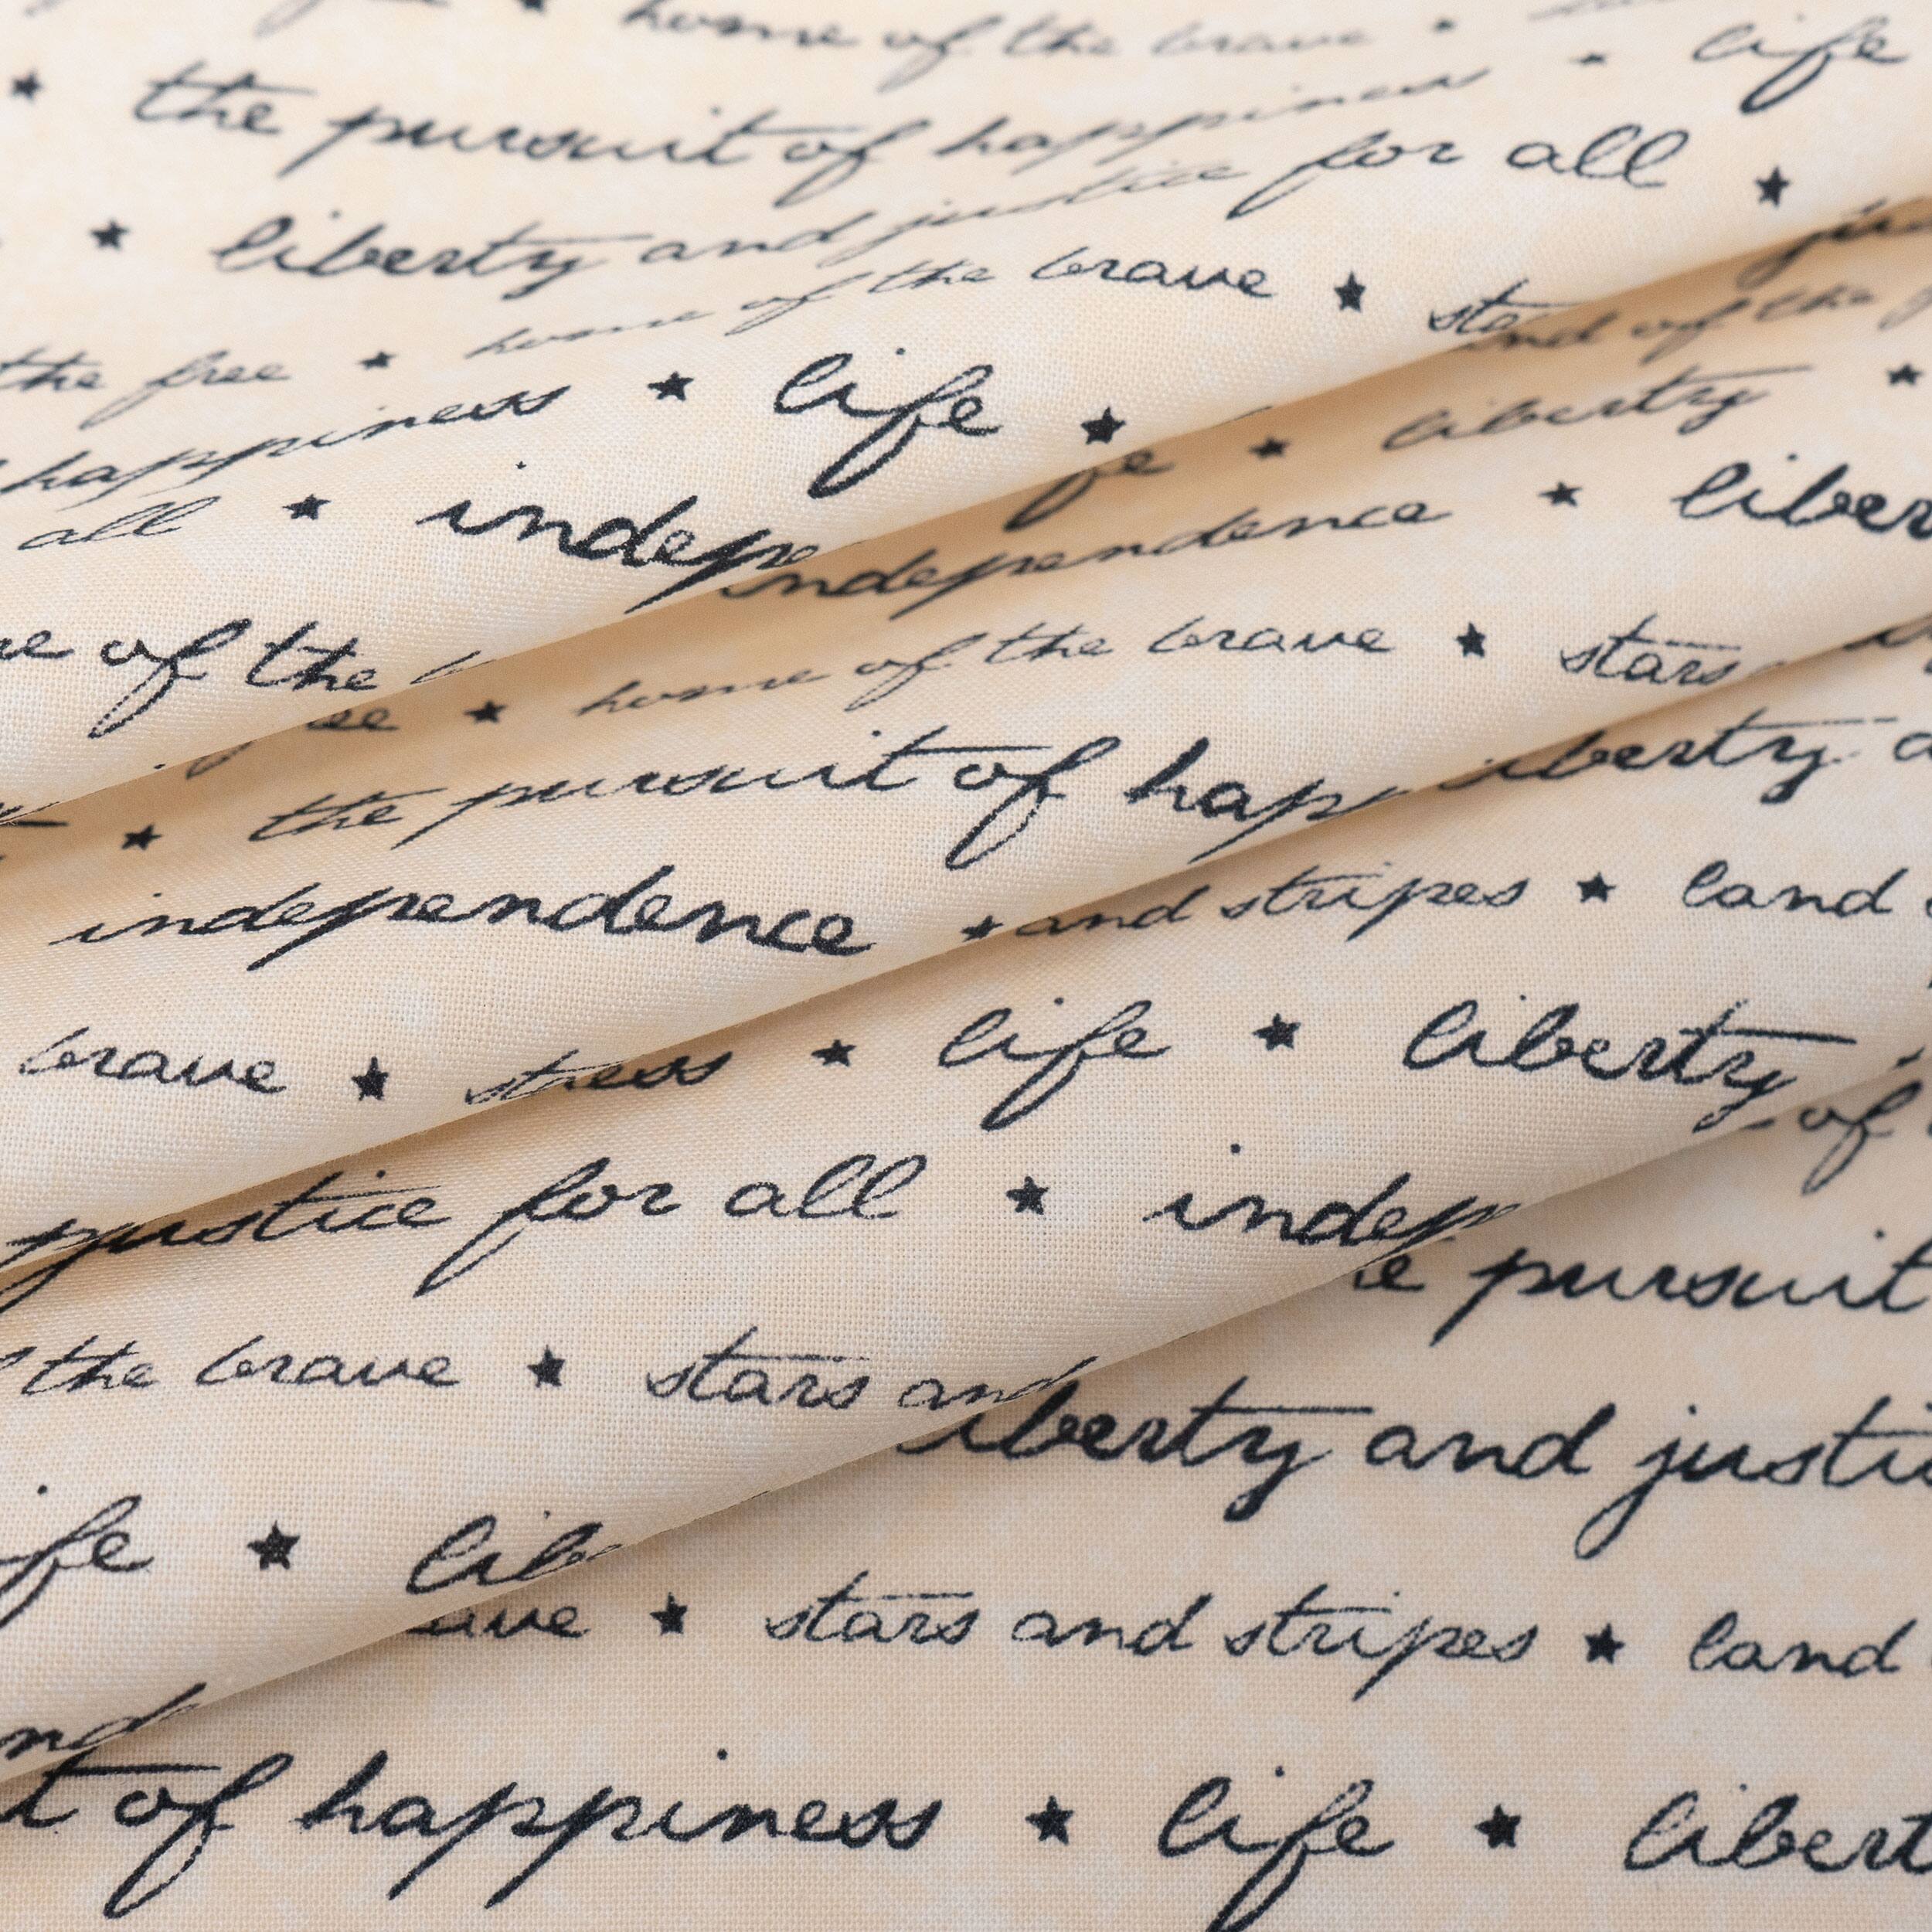 home of the brave ★
★ the pursuit of happiness ★ life
★ liberty and justice for all ★
the free ★ home of the brave ★
happiness ★ life ★
all ★ indep
of the
land of the
★ liberty ★
independence ★ liber
★ home of the brave ★ stars
★ the pursuit of hap
independence ★
liberty
and stripes ★ land
brave ★
★ life ★ liberty
justice for all ★ indep
of
the brave ★ stars and
pursuit
liberty and justi
life ★ lib
★ stars and stripes ★ land
of happiness ★ life ★ libert